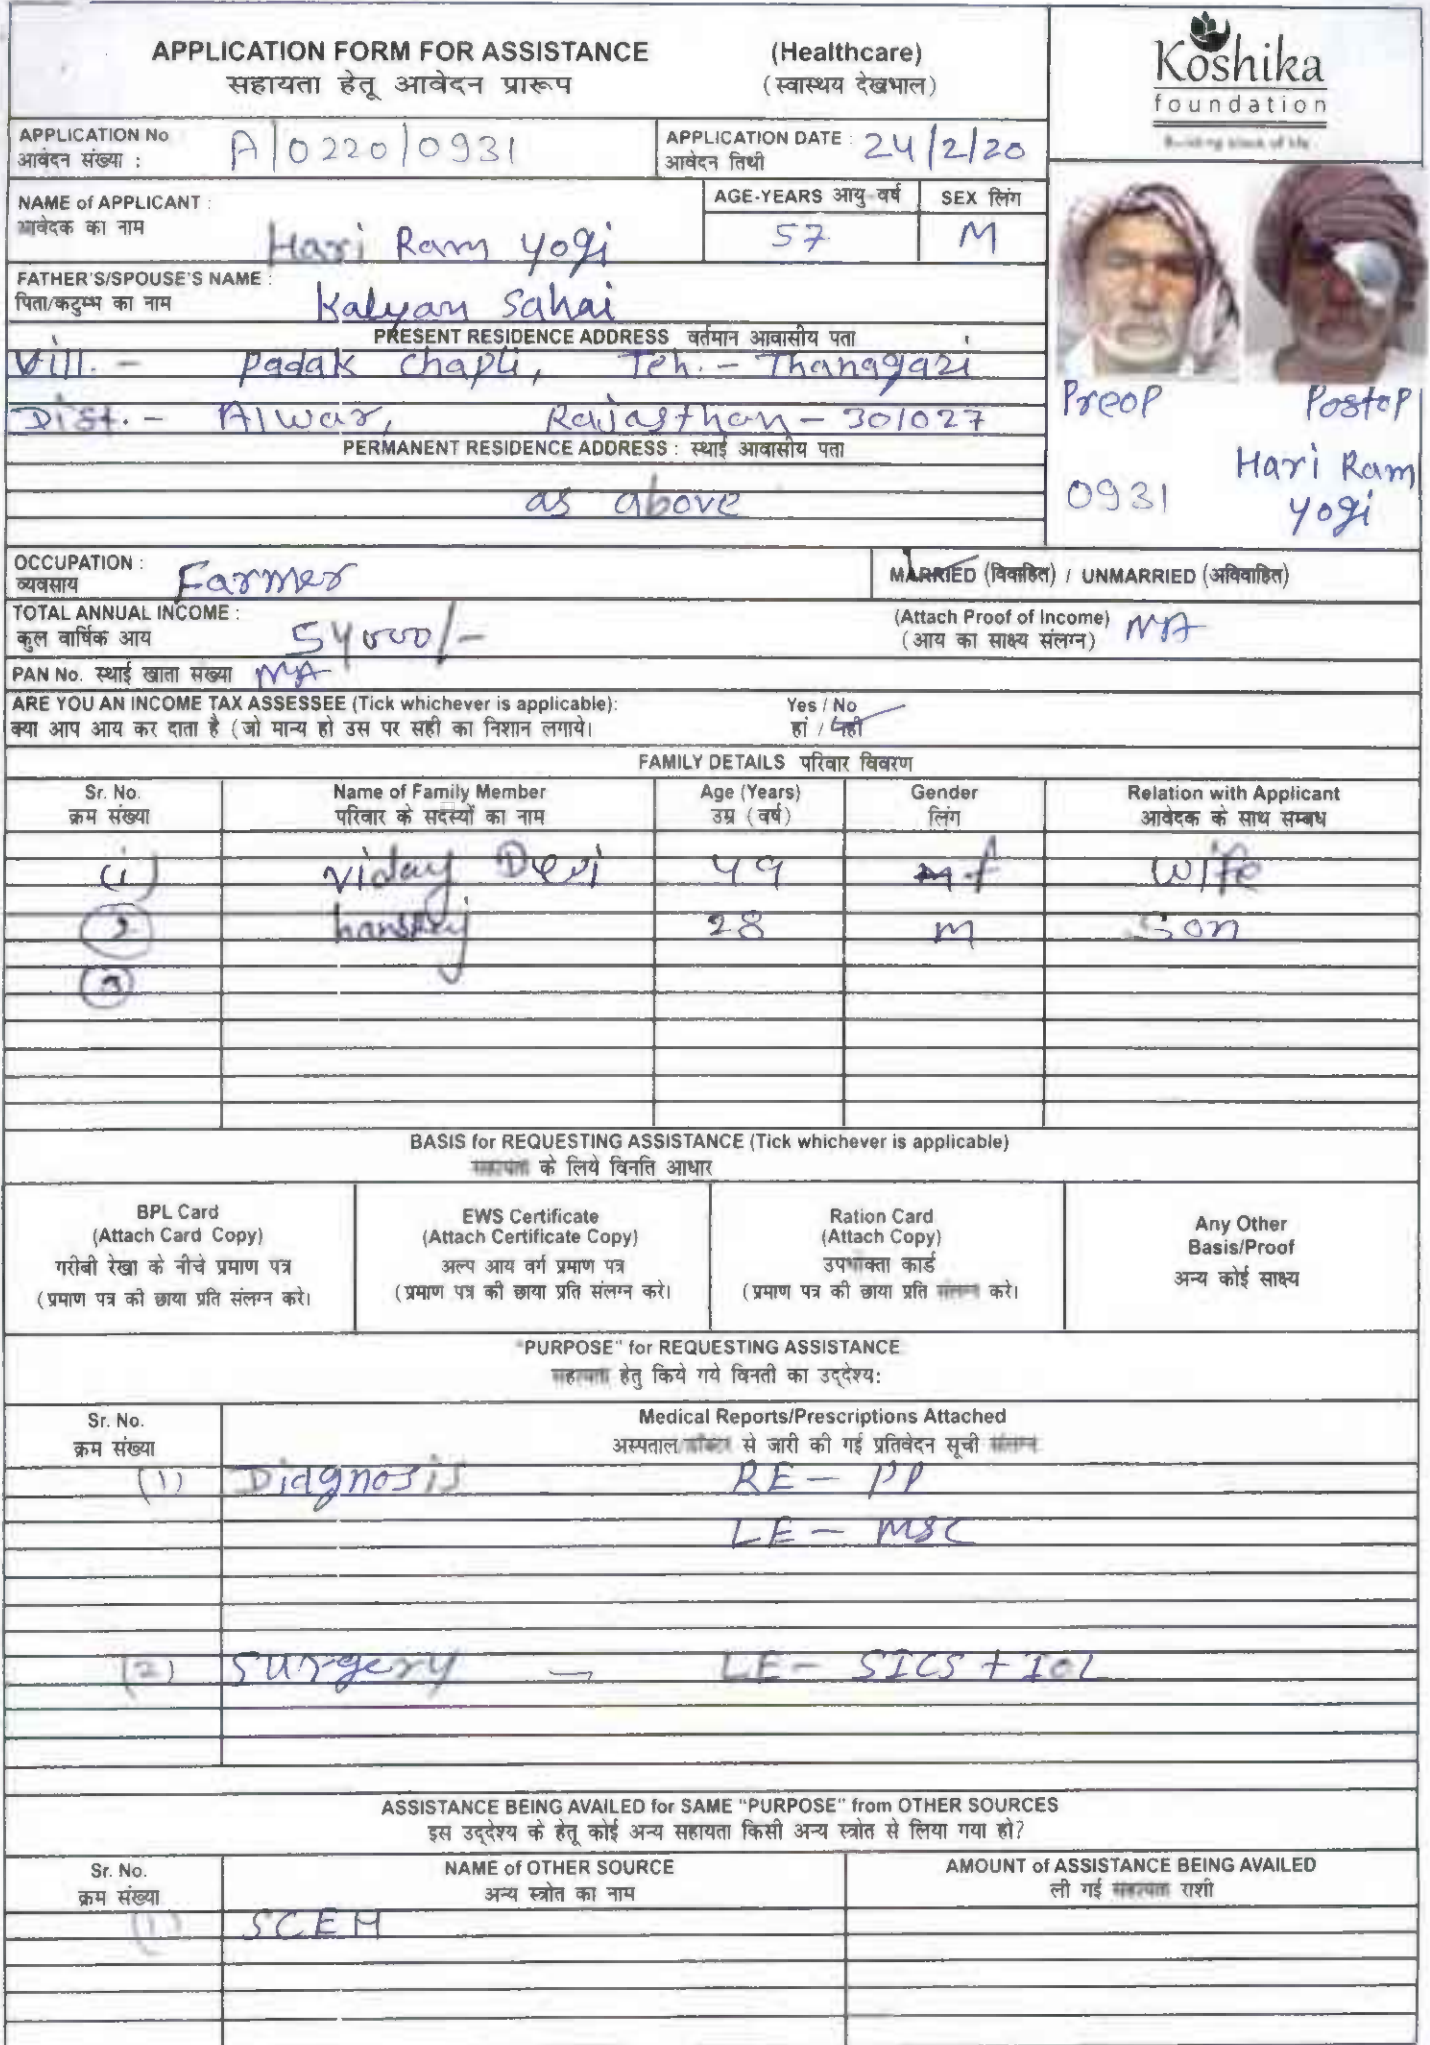 APPLICATION FORM FOR ASSISTANCE (Healthcare)
सहायता हेतू आवेदन प्रारूप (स्वास्थय देखभाल)
Koshika
foundation
APPLICATION No
आवेदन संख्या : A/0220/0931
APPLICATION DATE : 24/2/20
आवेदन तिथी
NAME of APPLICANT :
आवेदक का नाम Hari Ram yogi
AGE-YEARS आयु वर्ष SEX लिंग
57 M
FATHER'S/SPOUSE'S NAME :
पिता/कटुम्भ का नाम Kalyan Sahai
PRESENT RESIDENCE ADDRESS वर्तमान आवासीय पता
Vill. - Padak Chapli, Teh. - Thanagazi
Dist. - Alwar, Rajasthan - 301027
PERMANENT RESIDENCE ADDRESS : स्थाई आवासीय पता
as above
Preop Postop
0931 Hari Ram
yogi
OCCUPATION :
व्यवसाय Farmer
MARRIED (विवाहित) / UNMARRIED (अविवाहित)
TOTAL ANNUAL INCOME :
कुल वार्षिक आय 54000/-
(Attach Proof of Income) NA
(आय का साक्ष्य संलग्न)
PAN No. स्थाई खाता संख्या NA
ARE YOU AN INCOME TAX ASSESSEE (Tick whichever is applicable): Yes / No
क्या आप आय कर दाता है (जो मान्य हो उस पर सही का निशान लगाये। हां / नही
FAMILY DETAILS परिवार विवरण
Sr. No. Name of Family Member Age (Years) Gender Relation with Applicant
क्रम संख्या परिवार के सदस्यों का नाम उम्र (वर्ष) लिंग आवेदक के साथ सम्बध
(1) Viday Devi 49 f wife
2 hansraj 28 m Son
3
BASIS for REQUESTING ASSISTANCE (Tick whichever is applicable)
के लिये विनति आधार
BPL Card
(Attach Card Copy)
गरीबी रेखा के नीचे प्रमाण पत्र
(प्रमाण पत्र की छाया प्रति संलग्न करे।
EWS Certificate
(Attach Certificate Copy)
अल्प आय वर्ग प्रमाण पत्र
(प्रमाण पत्र की छाया प्रति संलग्न करे।
Ration Card
(Attach Copy)
उपभोक्ता कार्ड
(प्रमाण पत्र की छाया प्रति करे।
Any Other
Basis/Proof
अन्य कोई साक्ष्य
"PURPOSE" for REQUESTING ASSISTANCE
हेतु किये गये विनती का उद्देश्य:
Sr. No. Medical Reports/Prescriptions Attached
क्रम संख्या अस्पताल से जारी की गई प्रतिवेदन सूची
(1) Diagnosis RE - PP
LE - MSC
(2) Surgery - LE - SICS + IOL
ASSISTANCE BEING AVAILED for SAME "PURPOSE" from OTHER SOURCES
इस उद्देश्य के हेतू कोई अन्य सहायता किसी अन्य स्त्रोत से लिया गया हो?
Sr. No. NAME of OTHER SOURCE AMOUNT of ASSISTANCE BEING AVAILED
क्रम संख्या अन्य स्त्रोत का नाम ली गई राशी
(1) SCEH